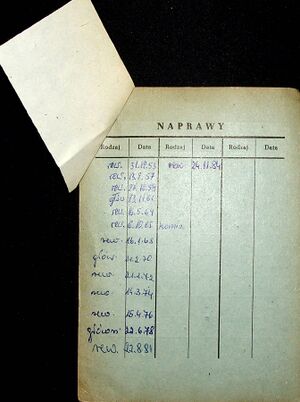 NAPRAWY
Rodzaj Data Rodzaj Data Rodzaj Data
rew. rew. 24.11.84
rew. 13.9.57
rew.
głów
rew. 6.5.64
rew. 6.10.65
rew. 16.1.68
głów. 21.2.70
rew. 21.2.72
rew. 14.3.74
rew. 15.4.76
główn. 22.6.78
rew. 22.8.81